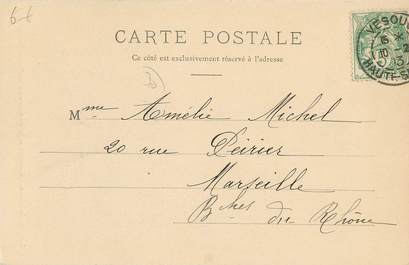 6 €
CARTE POSTALE
Ce côté est exclusivement réservé à l'adresse
VESOUL
HAUTE-S
Mme Amélie Michel
20 rue Périer
Marseille
Bches du Rhône